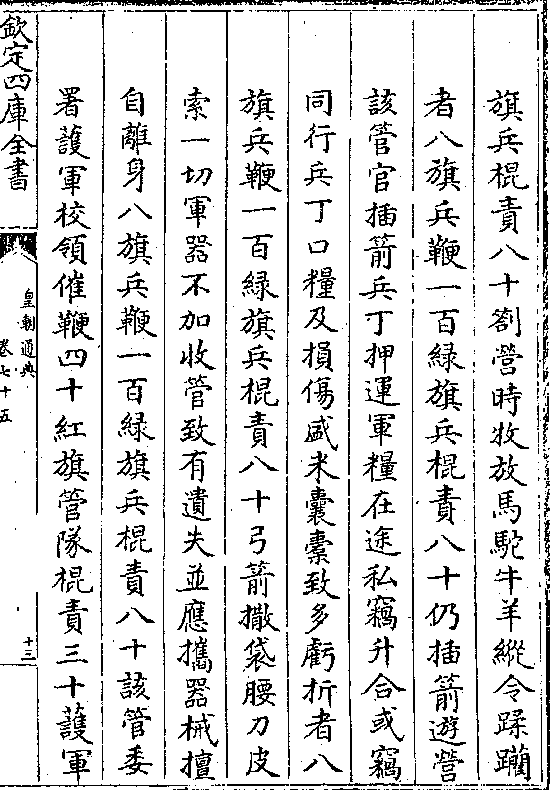 旗兵棍責八十劄營時牧放馬駝牛羊縱令蹂躪
者八旗兵鞭一百綠旗兵棍責八十仍插箭遊營
該管官插箭兵丁押運軍糧在途私竊升合或竊
同行兵丁口糧及損傷盛米囊橐致多虧折者八
旗兵鞭一百綠旗兵棍責八十弓箭撒袋腰刀皮
索一切軍器不加收管致有遺失並應攜器械擅
自離身八旗兵鞭一百綠旗兵棍責八十該管委
署護軍校領催鞭四十紅旗管隊棍責三十護軍
欽定四庫全書
皇朝通典
卷七十五
十三